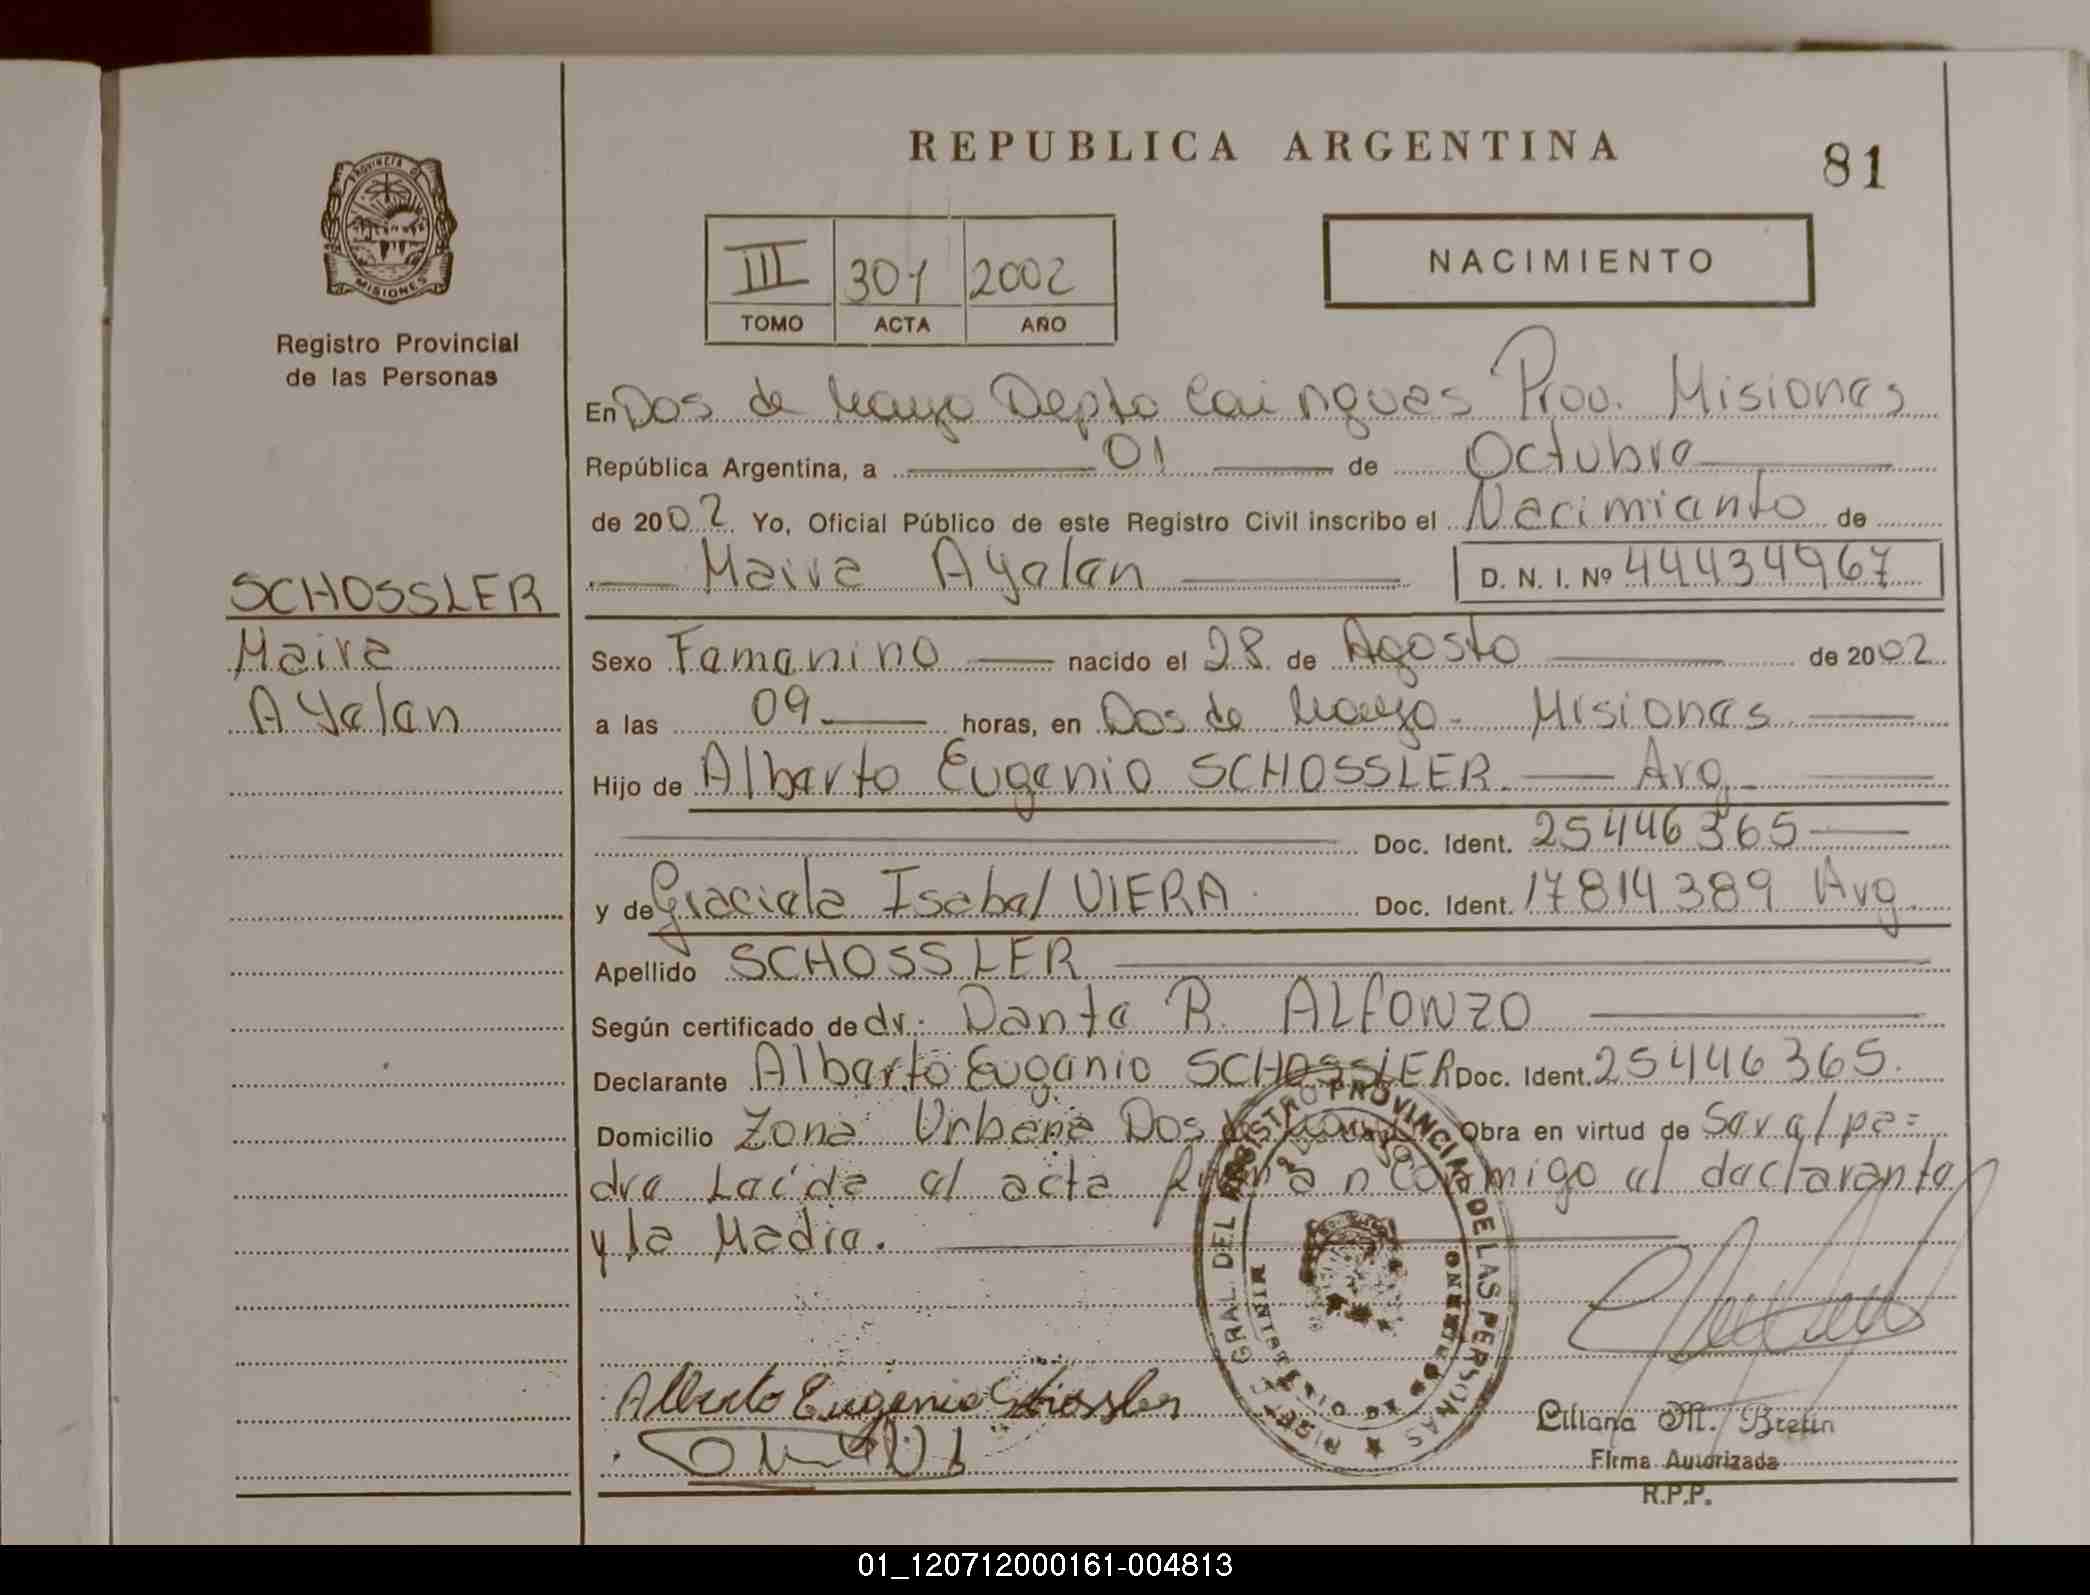 REPUBLICA ARGENTINA
81
PROVINCIA DE
MISIONES
Registro Provincial
de las Personas
III 301 2002
TOMO ACTA AÑO
NACIMIENTO
En Dos de Mayo Depto Cainguas Prov. Misiones
República Argentina, a 01 de Octubre
de 2002. Yo, Oficial Público de este Registro Civil inscribo el Nacimiento de
Maira Ayelen D. N. I. Nº 44434967
SCHOSSLER
Maira
Ayelen
Sexo Femenino nacido el 28 de Agosto de 2002
a las 09 horas, en Dos de Mayo - Misiones
Hijo de Alberto Eugenio SCHOSSLER Arg.
Doc. Ident. 25446365
y de Graciela Isabel VIERA Doc. Ident. 17814389 Arg.
Apellido SCHOSSLER
Según certificado de dr. Dante R. ALFONZO
Declarante Alberto Eugenio SCHOSSLER Doc. Ident. 25446365.
Domicilio Zona Urbana Dos de Mayo Obra en virtud de Ser el pa=
dre Leída el acta firman conmigo el declarante
y la Madre.
GRAL. DEL REGISTRO PROVINCIAL DE LAS PERSONAS
Alberto Eugenio Schossler
Liliana M. Bretin
Firma Autorizada
R.P.P.
01_120712000161-004813